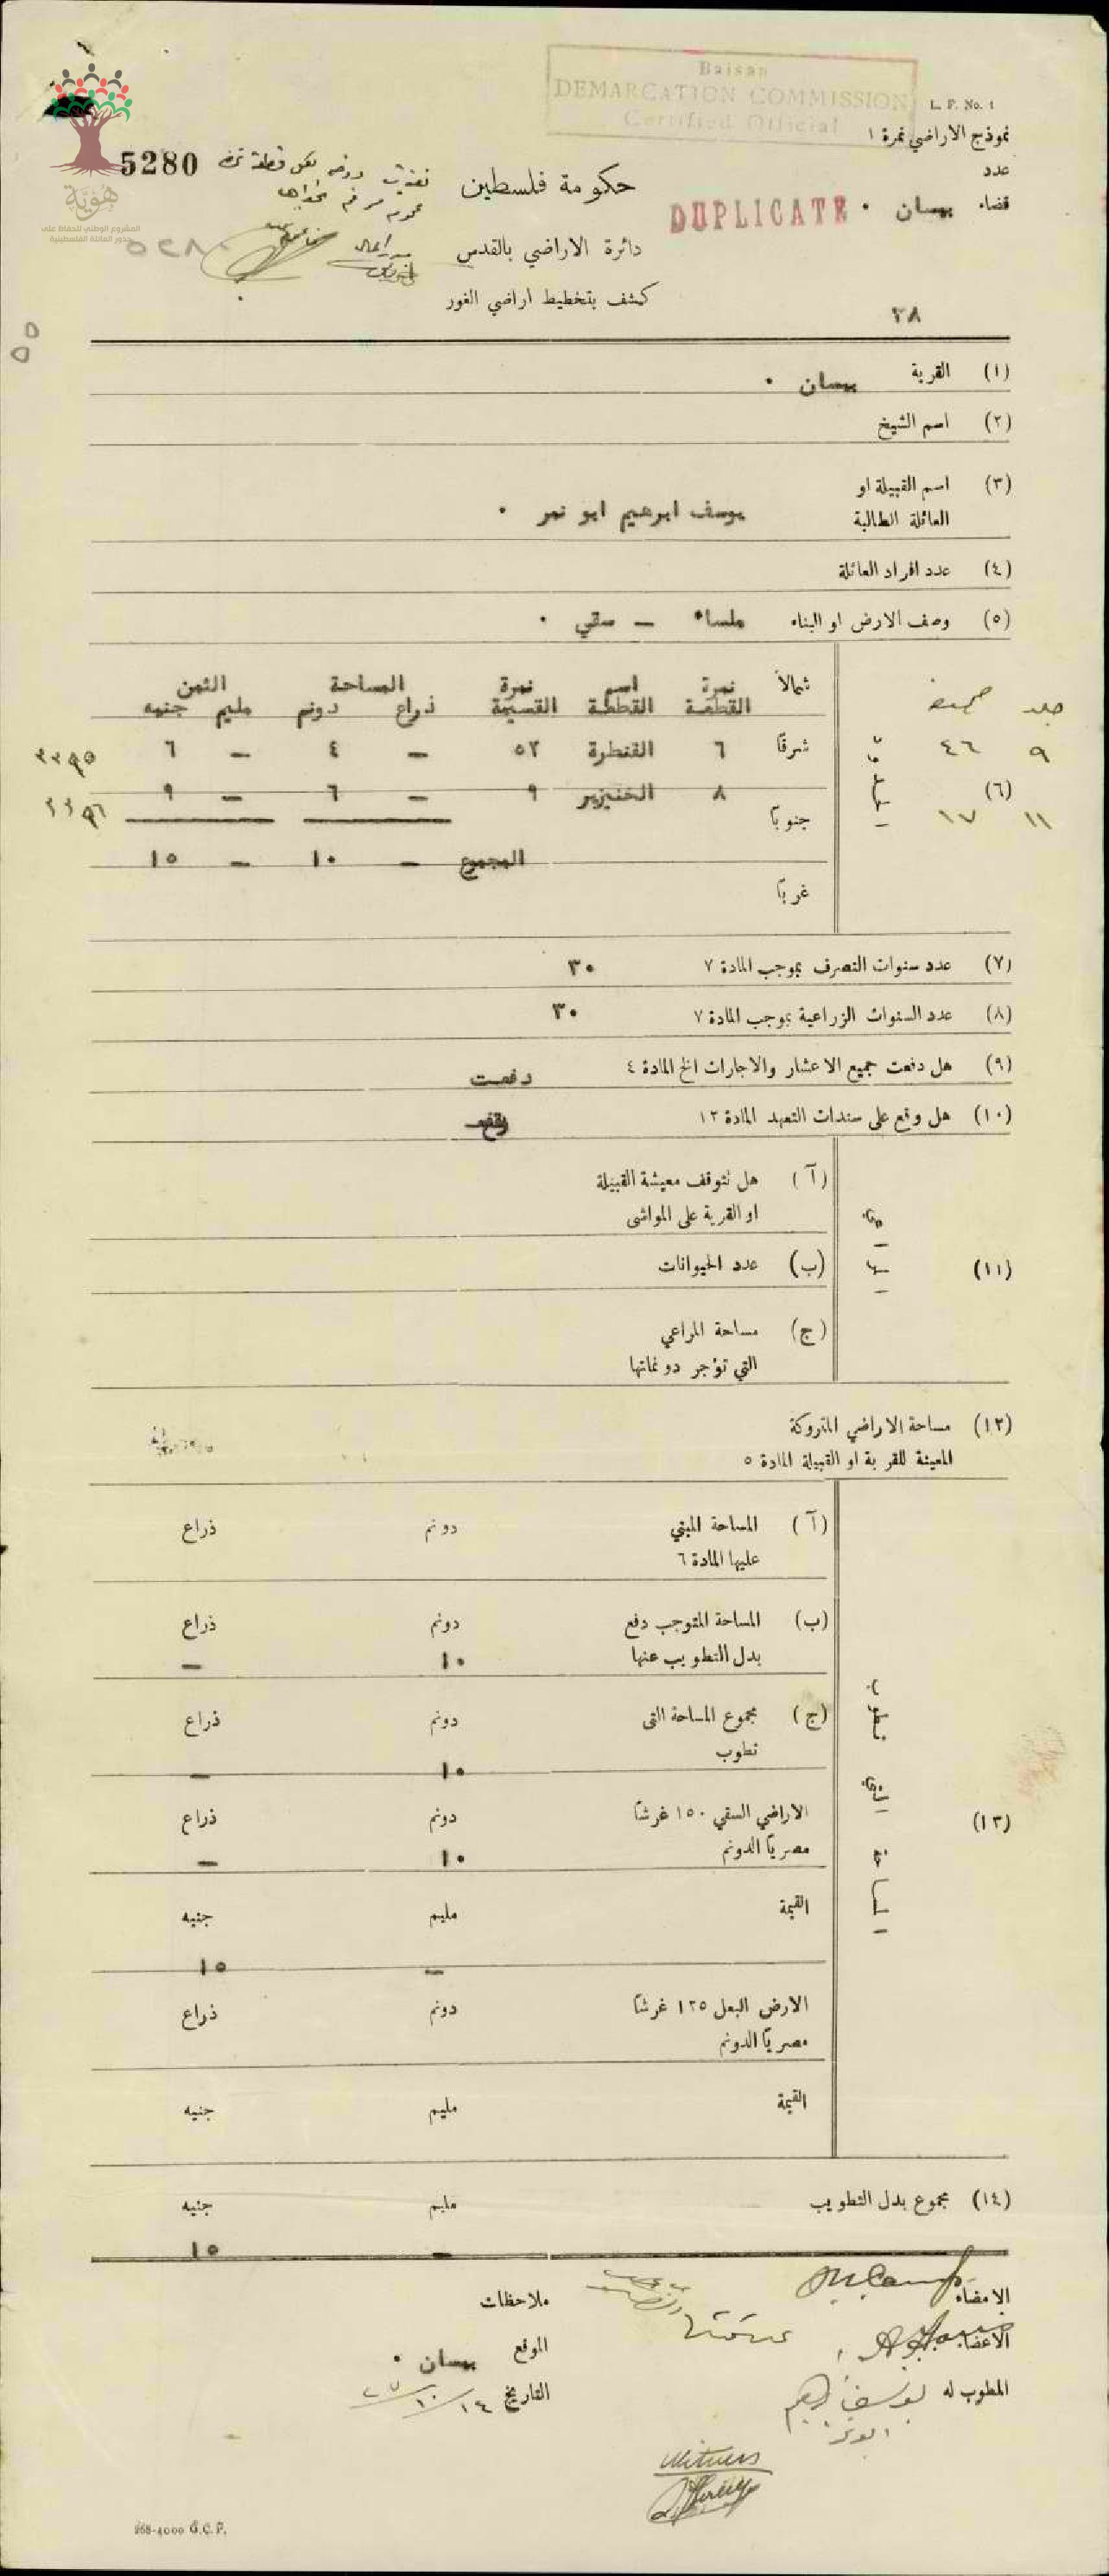 Baisan
DEMARCATION COMMISSION
Certified Official
L. F. No. 1
نموذج الاراضي نمرة ١
عدد
قضاء بيسان .
DUPLICATE
حكومة فلسطين
5280
هُويّة
المشروع الوطني للحفاظ على
جذور العائلة الفلسطينية
٥٢٨٠
دائرة الاراضي بالقدس
كشف بتخطيط اراضي الغور
٢٨
(١) القرية بيسان .
(٢) اسم الشيخ
(٣) اسم القبيلة او
العائلة الطالبة يوسف ابرهيم ابو نمر .
(٤) عدد افراد العائلة
(٥) وصف الارض او البناء ملساء — سقي .
شمالاً نمرة اسم نمرة المساحة الثمن
القطعة القطعة القسيمة ذراع دونم مليم جنيه
جلد صحيفة
٩ ٤٦ شرقاً ٦ القنطرة ٥٢ — ٤ — ٦
(٦) الحدود
١١ ١٧ ٨ الخنيزير ٩ — ٦ — ٩
جنوباً
المجموع — ١٠ — ١٥
غرباً
(٧) عدد سنوات التصرف بموجب المادة ٧ ٣٠
(٨) عدد السنوات الزراعية بموجب المادة ٧ ٣٠
(٩) هل دفعت جميع الاعشار والاجارات الخ المادة ٤ دفعت
(١٠) هل وقع على سندات التعهد المادة ١٢
(آ) هل تتوقف معيشة القبيلة
او القرية على المواشى
(١١) (ب) عدد الحيوانات
(ج) مساحة المراعي
التي تؤجر دونماتها
(١٢) مساحة الاراضي المتروكة
المعينة للقرية او القبيلة المادة ٥
(آ) المساحة المبني دونم ذراع
عليها المادة ٦
(ب) المساحة المتوجب دفع دونم ذراع
بدل التطويب عنها ١٠ —
(ج) مجموع المساحة التى دونم ذراع
تطوب ١٠ —
(١٣) المساحة التي تطوب
الاراضي السقي ١٥٠ غرشاً دونم ذراع
مصرياً الدونم ١٠ —
القيمة مليم جنيه
— ١٥
الارض البعل ١٢٥ غرشاً دونم ذراع
مصرياً الدونم
القيمة مليم جنيه
(١٤) مجموع بدل التطويب مليم جنيه
— ١٥
الامضاء ملاحظات
الاعضاء الموقع بيسان .
المطوب له يوسف ابرهيم التاريخ ١٤/١٠/٢٧
ابو نمر
Witness
268-4000 G.C.P.